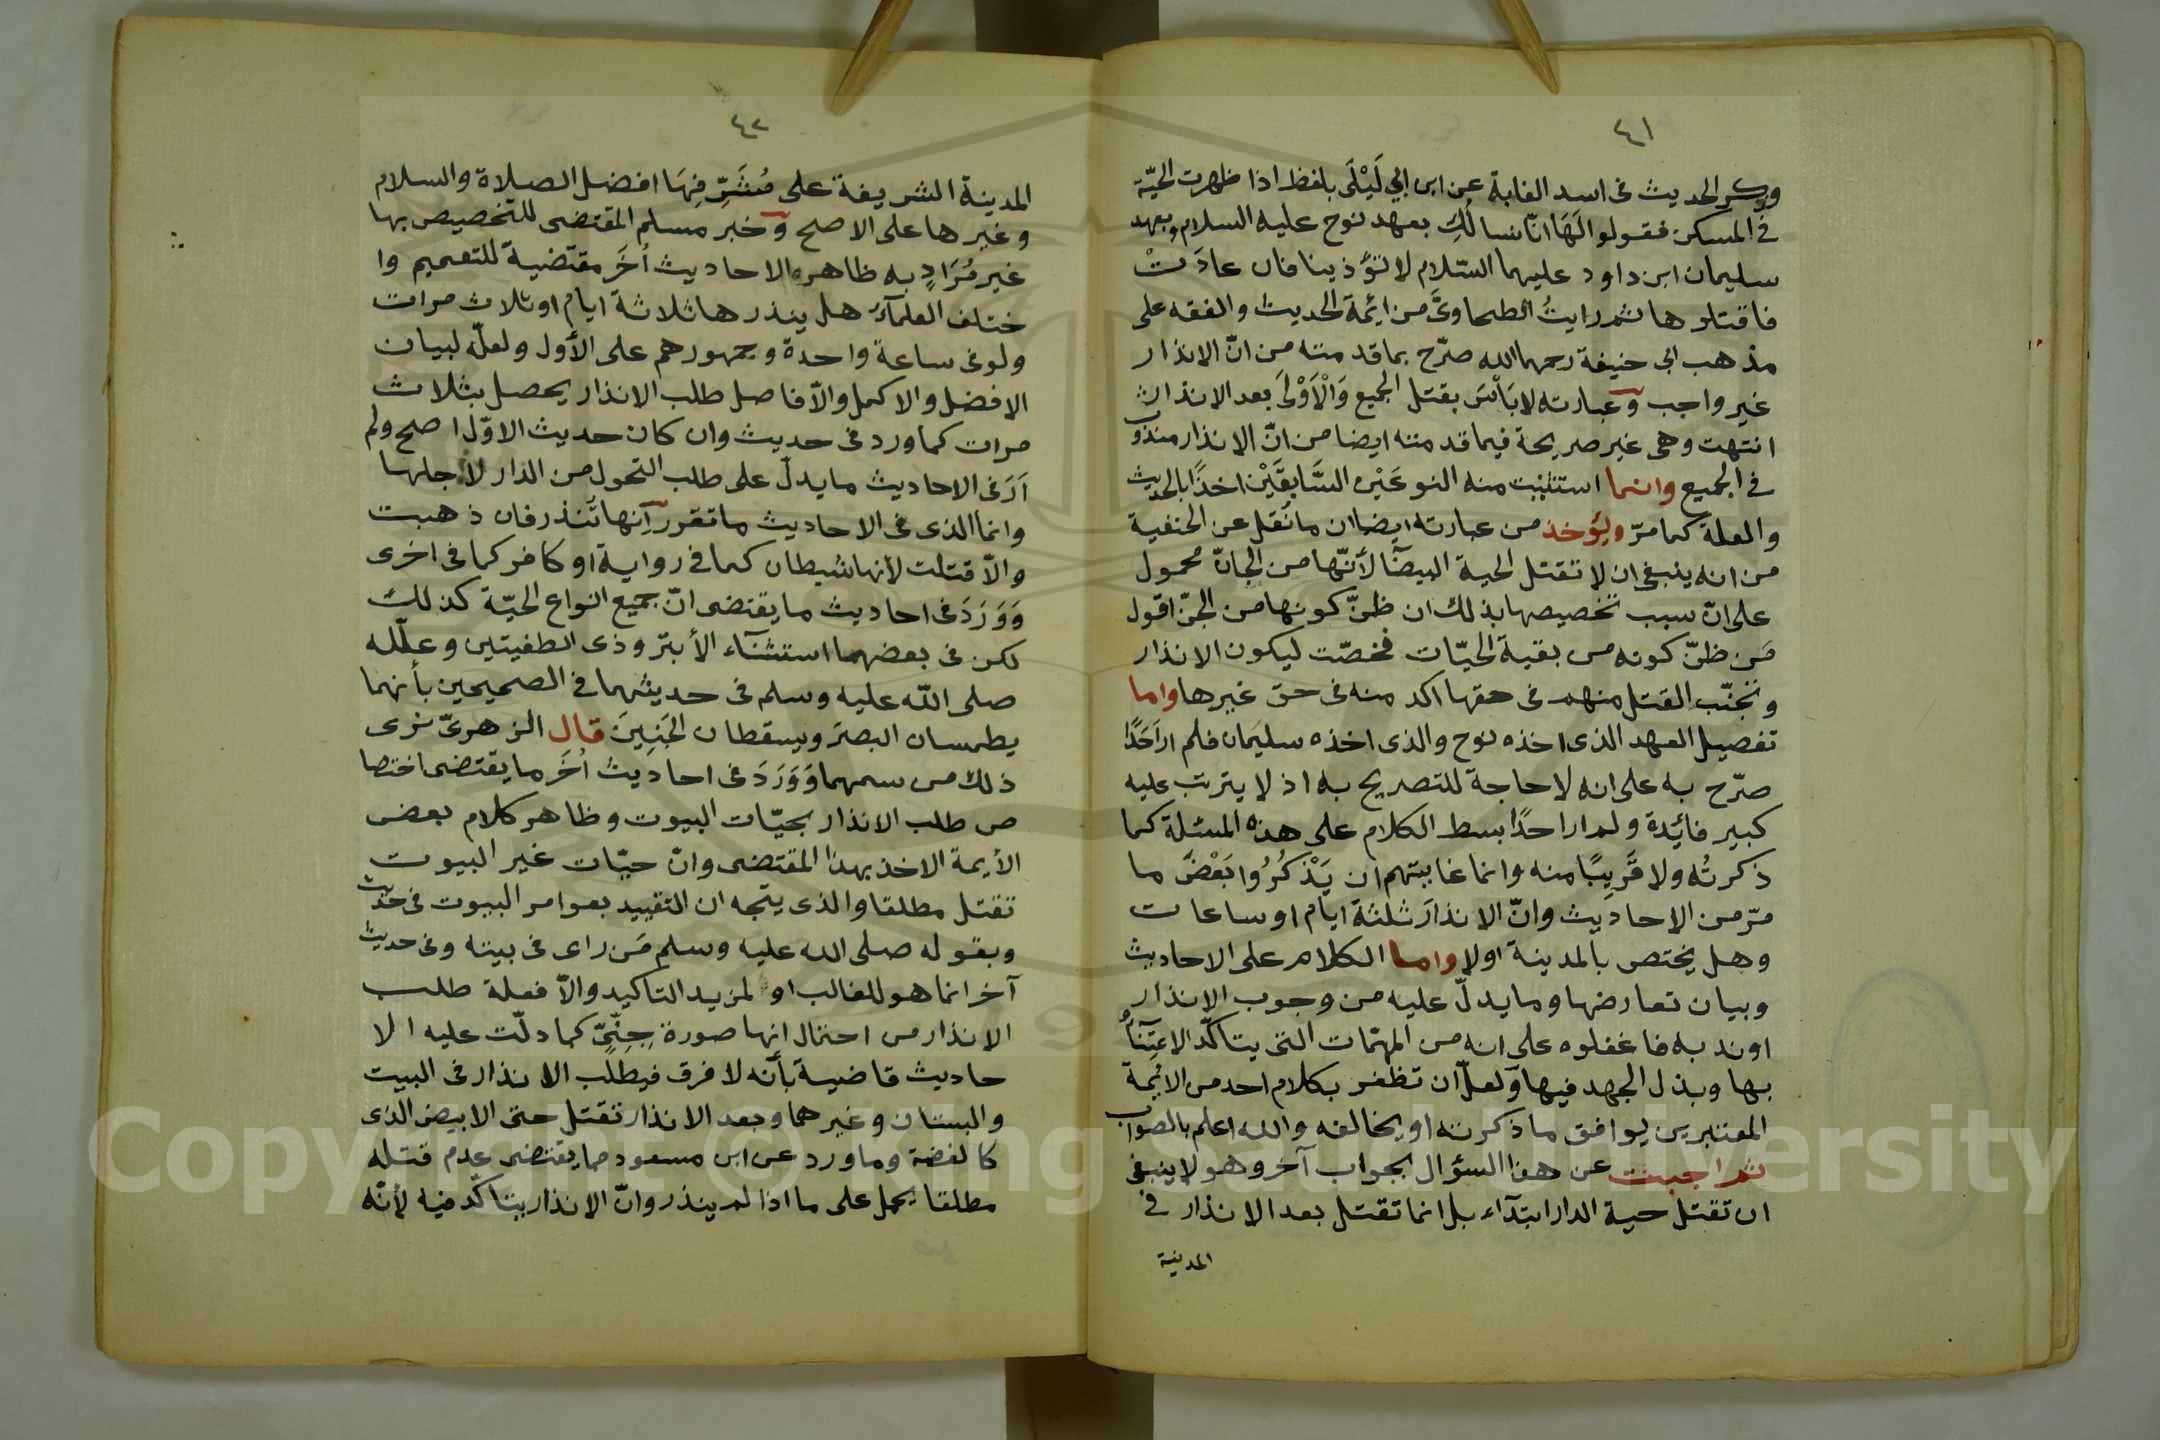 ٤١
وذكر الحديث فى اسد الغابة عن ابن ابي لَيْلَى بلفظ اذا ظهرت الحيّة
في المسكن فقولوا لَهَا انّا نسالُكِ بعهد نوح عليه السلام وبعهد
سليمان ابن داود عليهما السّلام لا تؤذينا فان عادَتْ
فاقتلوها ثم رايتُ الطحاوىَّ من ائمة الحديث والفقه على
مذهب ابى حنيفة رحمهما الله صرّح بما قدمته من انّ الانذار
غير واجب وعبارته لا بَأسَ بقتل الجميع وَالْاَوْلىَ بعد الانذار
انتهت وهى غير صريحة فيما قدمته ايضا من انّ الانذار مندوب
في الجميع وانما استثنيت منه النوعَيْن السَّابِقَيْن اخذًا بالحديث
والعلة كما مرّ ويؤخذ من عبارته ايضا ان ما نُقل عن الحنفية
من انه ينبغى ان لا تقتل الحية البيضآ لأنّها من الجانّ محمول
على انّ سبب تخصيصها بذلك ان ظنّ كونها من الجنّ اقول
مَن ظنّ كونه من بقية الحيّات فخصّت ليكون الانذار
وتجنّب القتل منهم فى حقها اكد منه فى حق غيرها واما
تفصيل العهد الذى اخذه نوح والذى اخذه سليمَان فلم ار اَحَدًا
صرّح به على انه لا حاجة للتصريح به اذ لا يترتب عليه
كبير فائدة ولم ار احدًا بسط الكلام على هذه المسئلة كما
ذكرتُه ولا قَرِيبًا منه وانما غايتهم ان يَذْكُرُوا بَعْضَ ما
مرّ من الاحاديث وانّ الانذارَ ثلثة ايام او ساعات
وهل يختص بالمدينة اولا واما الكلام على الاحاديث
وبيان تعارضها وما يدلّ عليه من وجوب الانذار
او ندبه فاغفلوه على انه من المهمّات التى يتاكّد الاعتِنآء
بها وبذل الجهد فيها ولعلّ ان تظفر بكلام احد من الائمة
المعتبرين يوافق ما ذكرته او يخالفه والله اعلم بالصواب
ثم اجبت عن هذا السؤال بجواب آخر وهو لا ينبغى
ان تقتل حية الدار ابتدآء بل انما تقتل بعد الانذار في
المدينة
٤٢
المدينة الشريفة على مُشَرِّفِهَا افضل الصلاة والسلام
وغيرها على الاصح وخبر مسلم المقتضى للتخصيص بها
غير مُرَادٍ به ظاهره الاحاديث اُخَر مقتضية للتعميم وا
ختلف العلمآء هل ينذرها ثلاثة ايام او ثلاث مرات
ولو فى ساعة واحدة وجمهورهم على الأول ولعلّه لبيان
الافضل والاكمل والّا فاصل طلب الانذار يحصل بثلاث
مرات كما ورد فى حديث وان كان حديث الاوّل اصح ولم
اَرَ فى الاحاديث ما يدلّ على طلب التحول من الدار لأجلها
وانما الذى فى الاحاديث ما تقرر انها تُنذر فان ذهبت
والّا قتلت لأنها شيطان كما فى رواية او كافر كما فى اخرى
وَوَرَدَ فى احاديث ما يقتضى انّ جميع انواع الحيّة كذلك
لكن فى بعضهما استثنآء الأبتر وذى الطفيتين وعلّله
صلى الله عليه وسلم فى حديثهما في الصحيحين بأنهما
يطمسان البصرَ ويسقطان الجَنِينَ قال الزهرىّ نرى
ذلك من سمهما وَوَرَدَ فى احاديث اُخَر ما يقتضى اختصا
ص طلب الانذار بحيّات البيوت وظاهر كلام بعض
الأيمة الاخذ بهذا المقتضى وانّ حيّات غير البيوت
تقتل مطلقا والذى يتّجه ان التقييد بعوامر البيوت فى حديث
وبقوله صلى الله عليه وسلم مَن راى فى بيته وفى حديث
آخر انما هو للغالب او لمزيد التاكيد والّا فعلة طلب
الانذار من احتمال انها صورة جِنِّىّ كما دلّت عليه الا
حاديث قاضية بأنه لا فرق فيطلب الانذار فى البيت
والبستان وغيرهما وبعد الانذار تقتل حتى الابيض الذى
كالفضة وما ورد عن ابن مسعود مما يقتضى عدم قتله
مطلقا يحمل على ما اذا لم ينذر وانّ الانذار يتاكّد فيه لأنّه
Copyright © King Saud University